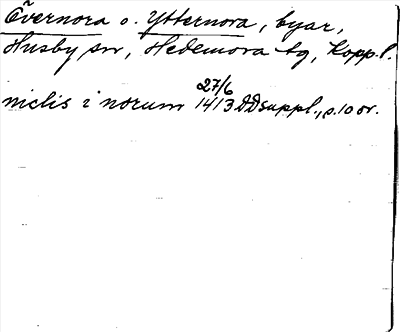 Övernora o. Ytternora, byar,
Husby sn, Hedemora tg, Kopp.l.
27/6
niclis i norum 1413 DDsuppl., s. 10 or.